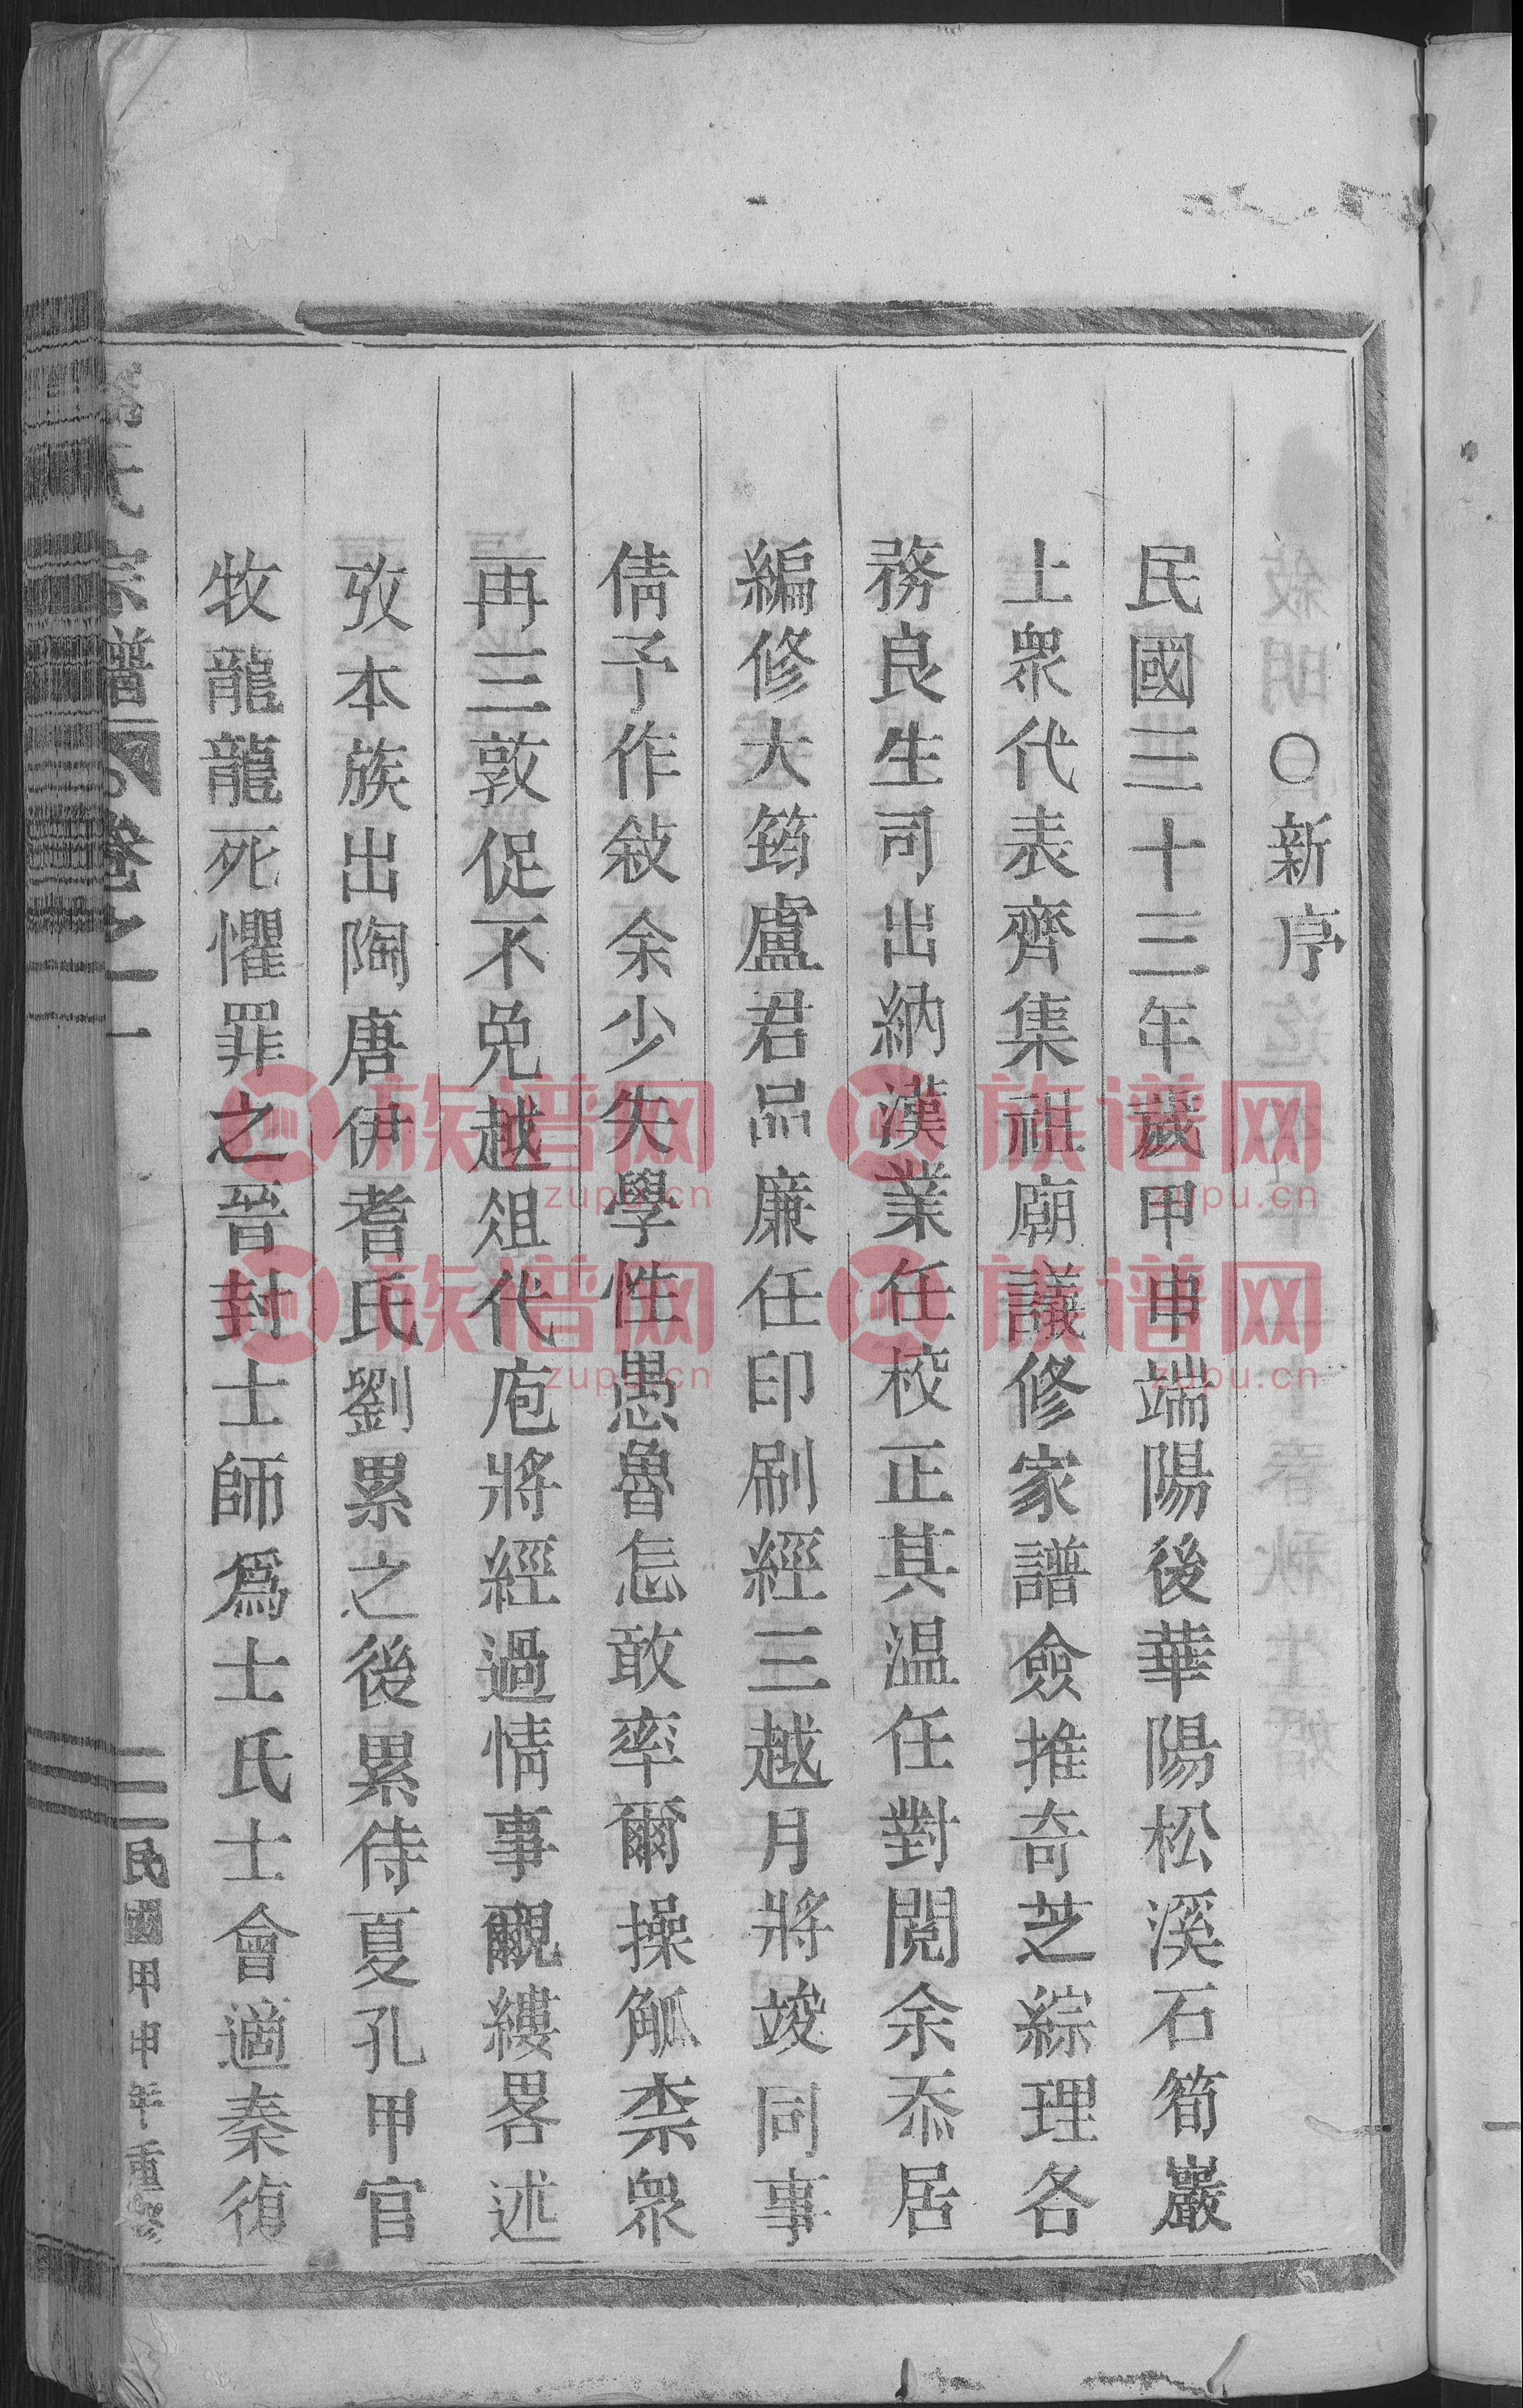 〇新序
民國三十三年歲甲申端陽後華陽松溪石筍巖
上衆代表齊集祖廟議修家譜僉推奇芝綜理各
務良生司出納漢業任校正其温任對閱余忝居
編修大筠盧君品廉任印刷經三越月將竣同事
倩予作敍余少失學性愚魯怎敢率爾操觚柰衆
再三敦促不免越俎代庖將經過情事覼縷畧述
攷本族出陶唐伊耆氏劉累之後累侍夏孔甲官
牧龍龍死懼罪之晉封士師爲士氏士會適秦復
氏宗譜 卷之一 二 民國甲申年重
族谱网 zupu.cn
族谱网 zupu.cn
族谱网 zupu.cn
族谱网 zupu.cn